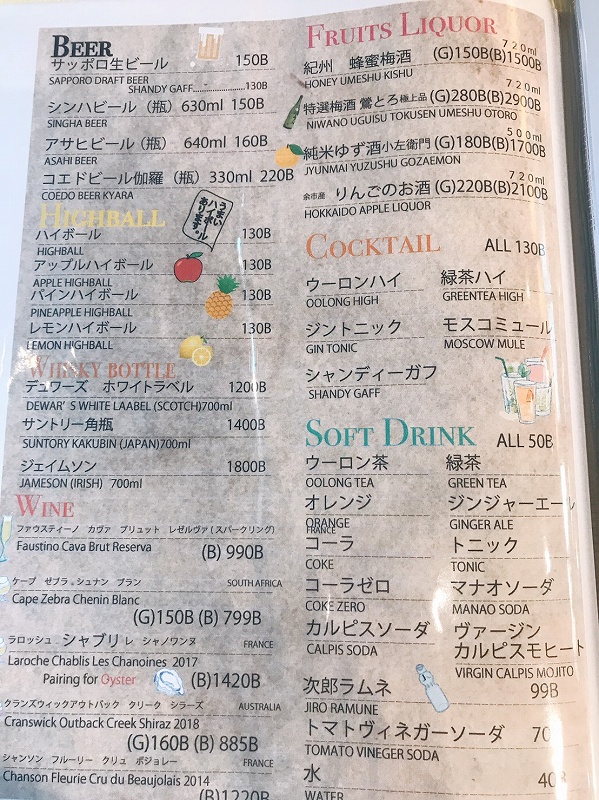 BEER
サッポロ生ビール 150B
SAPPORO DRAFT BEER
SHANDY GAFF......................130B
シンハビール（瓶）630ml 150B
SINGHA BEER
アサヒビール（瓶） 640ml 160B
ASAHI BEER
コエドビール伽羅（瓶）330ml 220B
COEDO BEER KYARA
HIGHBALL
うまい
ハイボール
あります。
ハイボール 130B
HIGHBALL
アップルハイボール 130B
APPLE HIGHBALL
パインハイボール 130B
PINEAPPLE HIGHBALL
レモンハイボール 130B
LEMON HIGHBALL
WHISKY BOTTLE
デュワーズ ホワイトラベル 1200B
DEWAR'S WHITE LAABEL (SCOTCH)700ml
サントリー角瓶 1400B
SUNTORY KAKUBIN (JAPAN)700ml
ジェイムソン 1800B
JAMESON (IRISH) 700ml
WINE
ファウスティーノ カヴァ ブリュット レゼルヴァ(スパークリング)
Faustino Cava Brut Reserva
(B) 990B
ケープ ゼブラ．シュナン ブラン SOUTH AFRICA
Cape Zebra Chenin Blanc
(G)150B (B) 799B
ラロッシュ シャブリ レ シャノワンヌ FRANCE
Laroche Chablis Les Chanoines 2017
Pairing for Oyster (B)1420B
クランズウィックアウトバック クリーク シラーズ AUSTRALIA
Cranswick Outback Creek Shiraz 2018
(G)160B (B) 885B
シャンソン フルーリー クリュ ボジョレー FRANCE
Chanson Fleurie Cru du Beaujolais 2014
(B)1220B
FRUITS LIQUOR
720ml
紀州 蜂蜜梅酒 (G)150B(B)1500B
HONEY UMESHU KISHU
720ml
特選梅酒 鶯とろ極上品 (G)280B(B)2900B
NIWANO UGUISU TOKUSEN UMESHU OTORO
500ml
純米ゆず酒小左衛門 (G)180B(B)1700B
JYUNMAI YUZUSHU GOZAEMON
720ml
余市産 りんごのお酒 (G)220B(B)2100B
HOKKAIDO APPLE LIQUOR
COCKTAIL ALL 130B
ウーロンハイ 緑茶ハイ
OOLONG HIGH GREENTEA HIGH
ジントニック モスコミュール
GIN TONIC MOSCOW MULE
シャンディーガフ
SHANDY GAFF
SOFT DRINK ALL 50B
ウーロン茶 緑茶
OOLONG TEA GREEN TEA
オレンジ ジンジャーエール
ORANGE GINGER ALE
FRANCE
コーラ トニック
COKE TONIC
コーラゼロ マナオソーダ
COKE ZERO MANAO SODA
カルピスソーダ ヴァージン
カルピスモヒート
CALPIS SODA VIRGIN CALPIS MOJITO
次郎ラムネ 99B
JIRO RAMUNE
トマトヴィネガーソーダ 70
TOMATO VINEGER SODA
水 40B
WATER